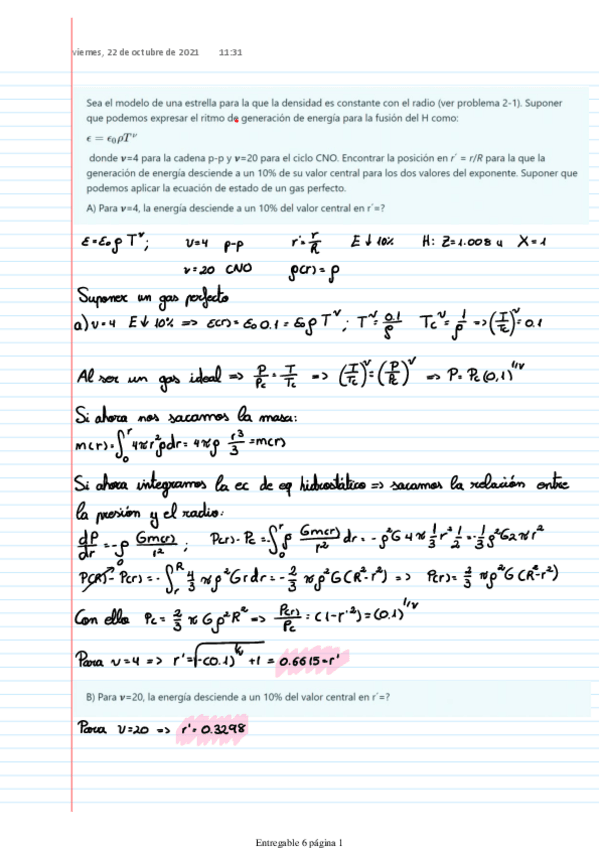 viernes, 22 de octubre de 2021 11:31
Sea el modelo de una estrella para la que la densidad es constante con el radio (ver problema 2-1). Suponer
que podemos expresar el ritmo de generación de energía para la fusión del H como:
ϵ = ϵ₀ρT^ν
donde ν=4 para la cadena p-p y ν=20 para el ciclo CNO. Encontrar la posición en r´ = r/R para la que la
generación de energía desciende a un 10% de su valor central para los dos valores del exponente. Suponer que
podemos aplicar la ecuación de estado de un gas perfecto.
A) Para ν=4, la energía desciende a un 10% del valor central en r´=?
ε=ε₀ρT^ν; ν=4 p-p r'=r/R E↓10% H: Z=1.008 u X=1
ν=20 CNO ρ(r)=ρ
Suponer un gas perfecto
a) ν=4 E↓10% => ε(r)=ε₀0.1=ε₀ρT^ν; T^ν=0.1/ρ Tc^ν=1/ρ => (T/Tc)^ν=0.1
Al ser un gas ideal => P/Pc=T/Tc => (T/Tc)^ν=(P/Pc)^ν => P=Pc(0,1)^1/ν
Si ahora nos sacamos la masa:
m(r)=∫₀^r 4πr²ρdr=4πρ r³/3=m(r)
Si ahora integramos la ec de eq hidrostático => sacamos la relación entre
la presión y el radio:
dP/dr=-ρ Gm(r)/r²; P(r)-Pc=-∫₀^r ρ Gm(r)/r² dr=-ρ²G4π 1/3 r² 1/2=-1/3 ρ²G2πr²
P(R)-P(r)=-∫_r^R 4/3 πρ²Grdr=-2/3 πρ²G(R²-r²) => P(r)=2/3 πρ²G(R²-r²)
Con ello Pc=2/3 πGρ²R² => P(r)/Pc=(1-r'²)=(0.1)^1/ν
Para ν=4 => r'=√(-(0.1)^1/4+1)=0.6615=r'
B) Para ν=20, la energía desciende a un 10% del valor central en r´=?
Para ν=20 => r'=0.3298
Entregable 6 página 1